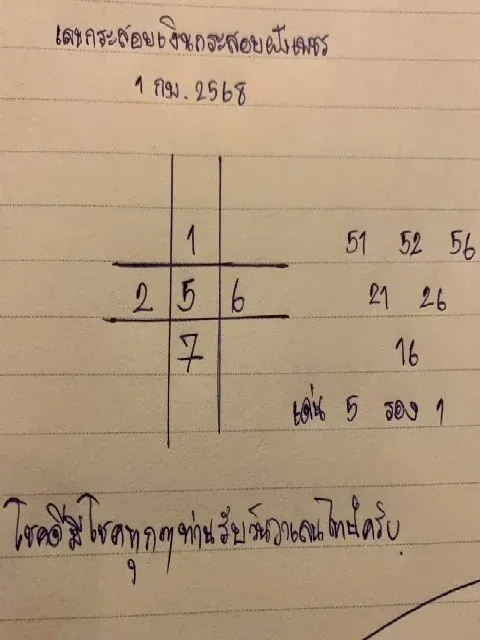 เลขกระสอบเงินกระสอบฝังเพชร
1 กพ. 2568
1 51 52 56
2 5 6 21 26
7 16
เด่น 5 รอง 1
โชคดีมีโชคทุกๆท่านรับวันวาเลนไทน์ครับ